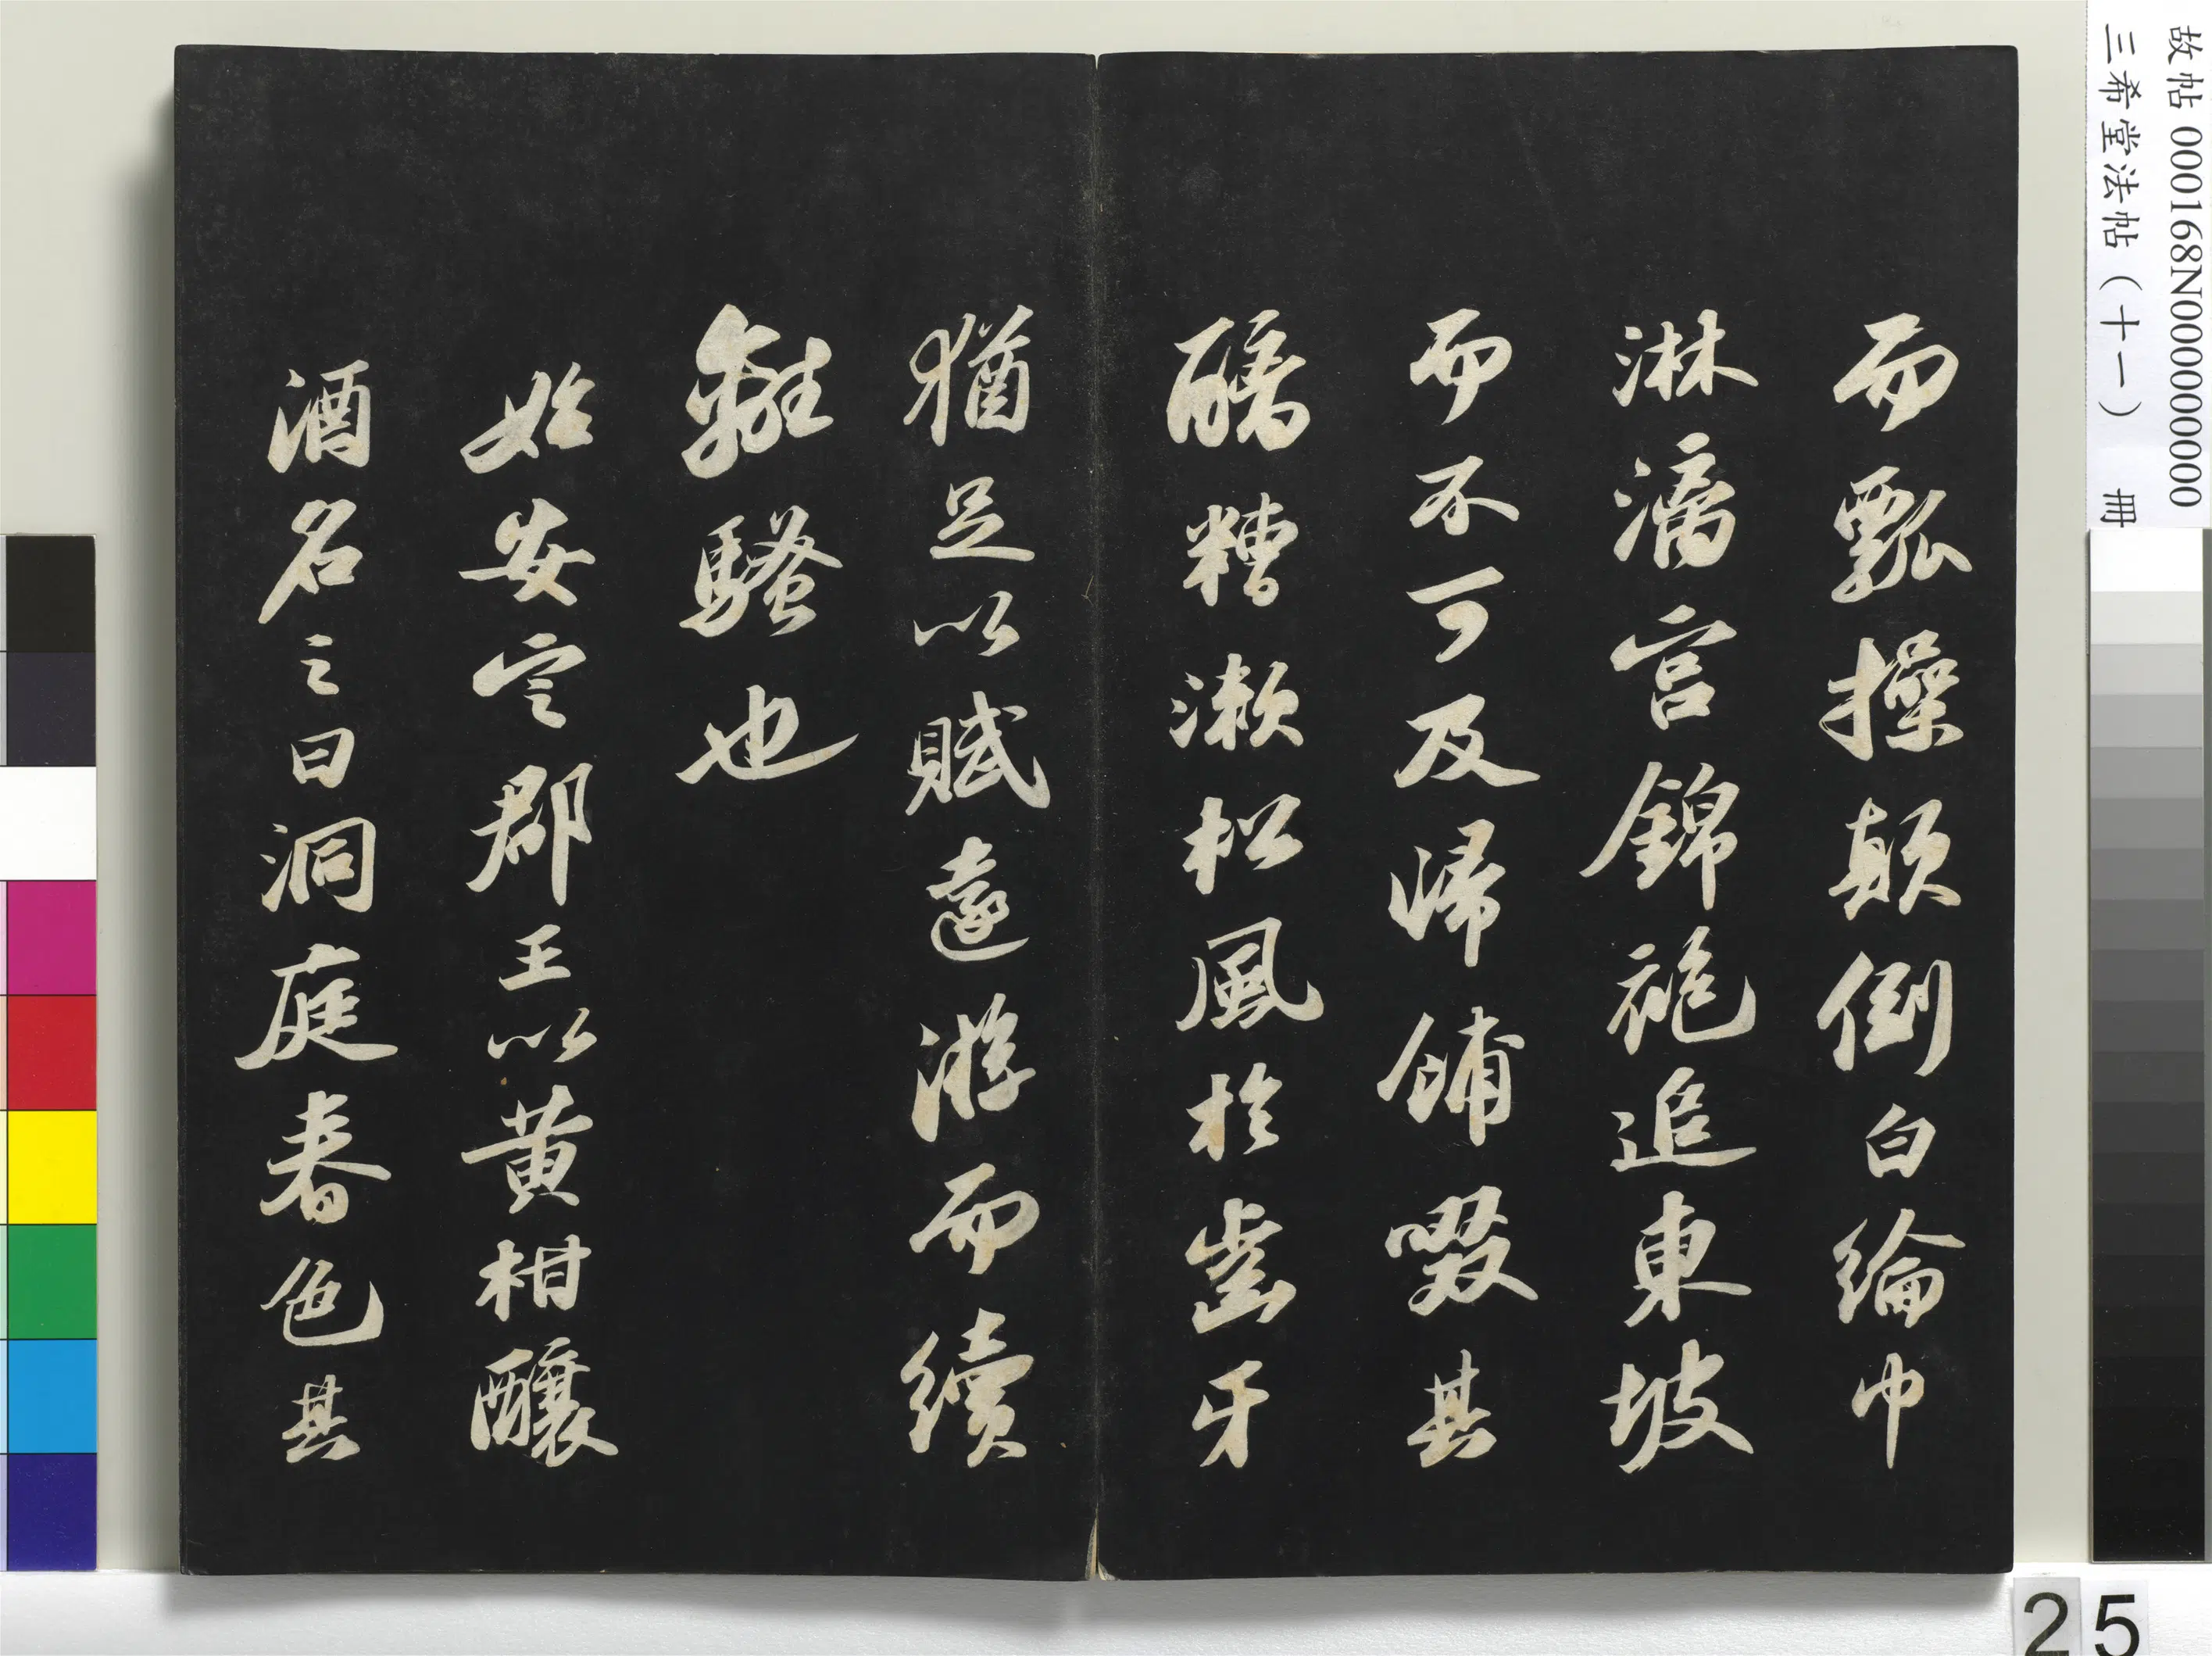 故帖 000168N000000000
三希堂法帖（十一） 冊
而瓢操顛倒白綸巾
淋漓宮錦袍追東坡
而不可及歸餔啜其
醨糟漱松風於齒牙
猶足以賦遠游而續
離騷也
始安定郡王以黄柑釀
酒名之曰洞庭春色其
25